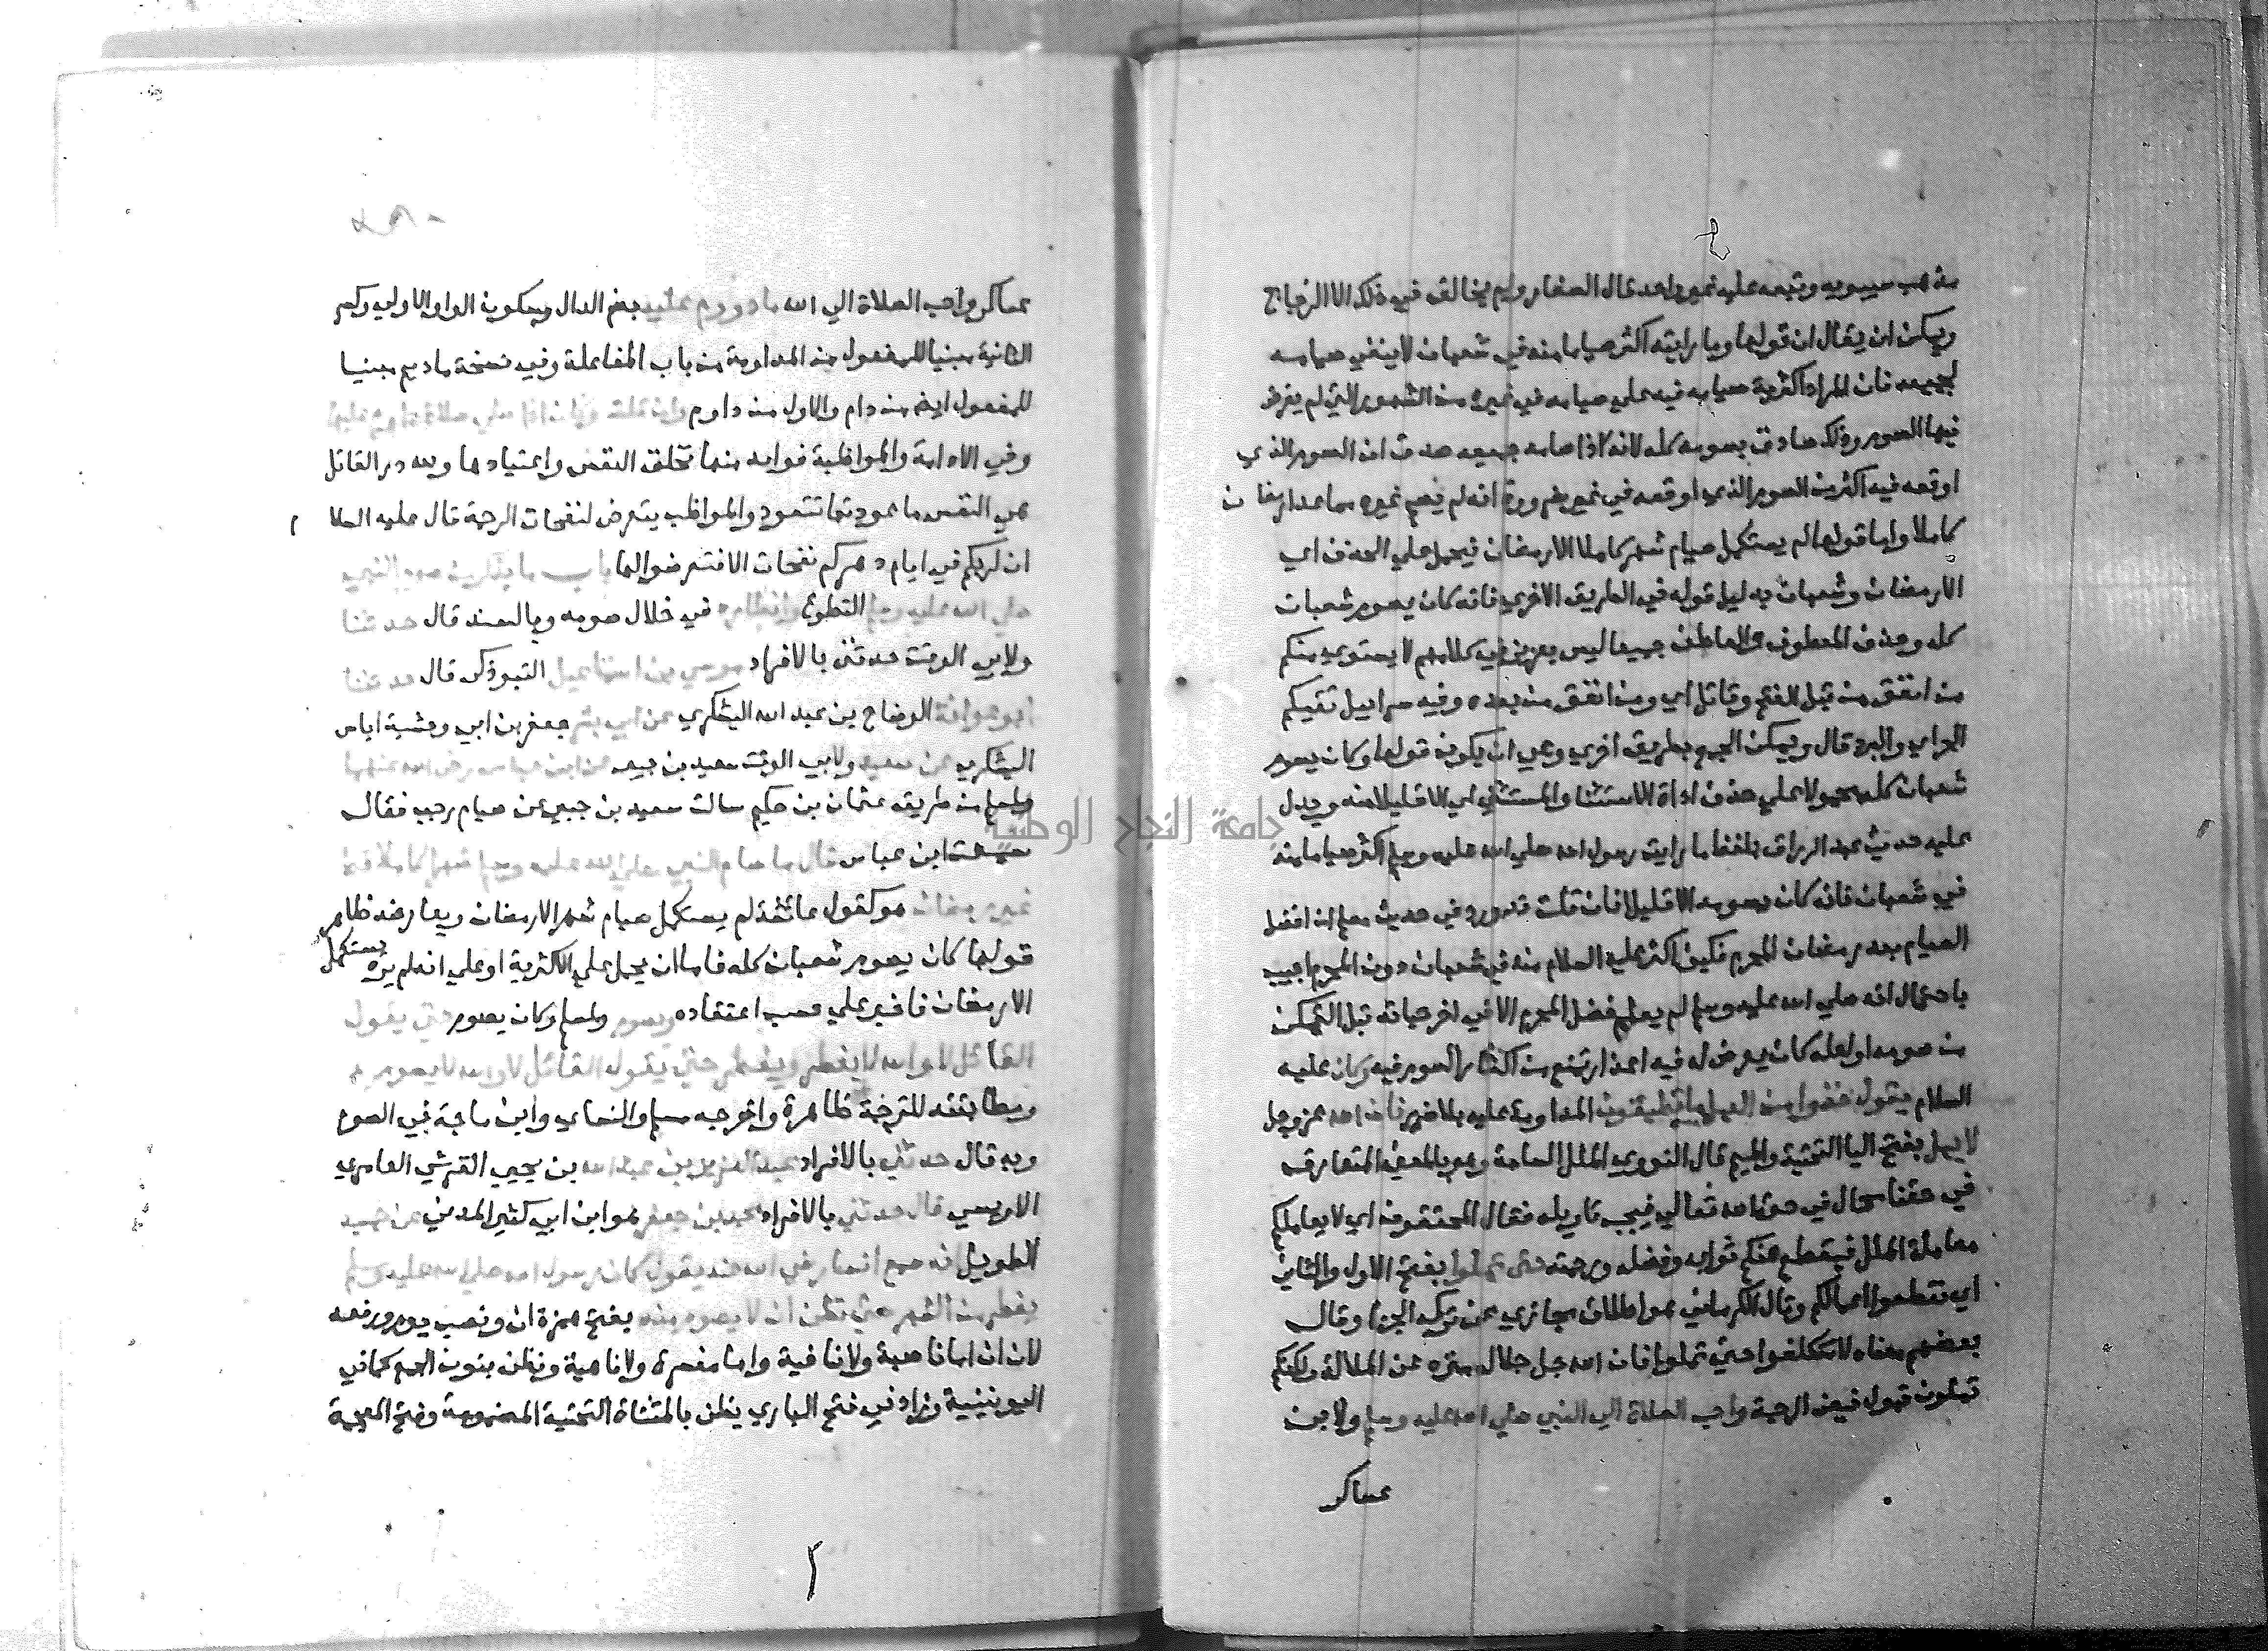 مذهب سيبويه وتبعه عليه غير واحد قال الصفار ولم يخالف في ذلك الا الزجاج
ويمكن ان يقال ان قولها وما رايته اكثر صياما منه في شعبان لا ينفي صيامه
لجميعه فان المراد اكثرية صيامه فيه على صيامه في غيره من الشهور التي لم يفرض
فيها الصوم وذلك صادق بصومه كله لانه اذا صامه جميعه صدق ان الصوم الذي
اوقعه فيه اكثر من الصوم الذي اوقعه في غيره ضرورة انه لم يصم غيره مما عدا رمضان
كاملا واما قولها لم يستكمل صيام شهر كاملا الا رمضان فيحمل علي الحذف اي
الا رمضان وشعبان بدليل قوله في الطريق الاخري فانه كان يصوم شعبان
كله وحذف المعطوف والعاطف جميعا ليس بعزيز في كلامهم لا يستوي منكم
من انفق من قبل الفتح وقاتل اي ومن انفق من بعده وفيه سرابيل تقيكم
الحر اي والبرد قال ويمكن الجمع بطريق اخري وهي ان يكون قولها وكان يصوم
شعبان كله محمولا علي حذف اداة الاستثنا والمستثني اي الا قليلا منه ويدل
عليه حديث عبد الرزاق بلفظ ما رايت رسول الله صلي الله عليه وسلم اكثر صياما منه
في شعبان فانه كان يصومه الا قليلا فان قلت قد ورد في حديث مسلم ان افضل
الصيام بعد رمضان المحرم فكيف اكثر عليه السلام منه في شعبان دون المحرم اجيب
باحتمال انه صلي الله عليه وسلم لم يعلم فضل المحرم الا في اخر حياته قبل التمكن
من صومه او لعله كان يعرض له فيه اعذار تمنع من اكثار الصوم فيه وكان عليه
السلام يقول خذوا من العمل ما تطيقون المداومة عليه بلا ضرر فان الله عز وجل
لا يمل بفتح اليا التحتية والميم قال النووي الملل السامة وهو بالمعني المتعارف
في حقنا محال في حق الله تعالي فيجب تاويله فقال المحققون اي لا يعاملكم
معاملة الملل فيقطع عنكم ثوابه وفضله ورحمته حتى تملوا بفتح الاول والثاني
اي تقطعوا اعمالكم وقال الكرماني هو اطلاق مجازي عن ترك الجزا وقال
بعضهم معناه لا تتكلفوا حتي تملوا فان الله جل جلاله منزه عن الملالة ولكنكم
تملون قبول فيض الرحمة واحب الصلاة الي النبي صلي الله عليه وسلم ولابن
عساكر
عساكر واحب الصلاة الي الله ما دووم عليه بضم الدال وسكون الواو الاولي وكسر
الثانية مبنيا للمفعول من المداومة من باب المفاعلة وفي نسخة ما ديم مبنيا
للمفعول ايضا من دام والاول من داوم وان قلت وكان اذا صلي صلاة داوم عليها
وفي الادامة والمواظبة فوايد منها تخلق النفس واعتيادها ولله در القائل
هي النفس ما عودتها تتعود والمواظب يتعرض لنفحات الرحمة قال عليه السلام
ان لربكم في ايام دهركم نفحات الا فتعرضوا لها باب ما يذكر من صوم النبي
صلي الله عليه وسلم التطوع وافطاره في خلال صومه وبالسند قال حدثنا
ولابي الوقت حدثني بالافراد موسي بن اسماعيل التبوذكي قال حدثنا
ابو عوانة الوضاح بن عبد الله اليشكري عن ابي بشر جعفر بن ابي وحشية اياس
اليشكري عن سعيد ولابي الوقت سعيد بن جبير عن ابن عباس رضي الله عنهما
ولمسلم من طريق عثمان بن حكيم سالت سعيد بن جبير عن صيام رجب فقال
سمعت ابن عباس قال ما صام النبي صلي الله عليه وسلم شهرا كاملا قط
غير رمضان هو كقول عائشة لم يستكمل صيام شهر الا رمضان ويعارضه ظاهر
قولها كان يصوم شعبان كله فاما ان يحمل علي الاكثرية او علي انه لم يره يستكمل
الا رمضان فاخبر علي حسب اعتقاده ويصوم ولمسلم وكان يصوم حتي يقول
القائل لا والله لا يفطر ويفطر حتي يقول القائل لا والله لا يصوم
ومطابقته للترجمة ظاهرة واخرجه مسلم والنساي وابن ماجة في الصوم
وبه قال حدثني بالافراد عبد العزيز بن عبد الله بن يحيي القرشي العامري
الاويسي قال حدثني بالافراد محمد بن جعفر هو ابن ابي كثير المدني عن حميد
الطويل انه سمع انسا رضي الله عنه يقول كان رسول الله صلي الله عليه وسلم
يفطر من الشهر حتي نظن ان لا يصوم منه بفتح همزة ان ونصب يصوم ورفعه
لان ان اما ناصبة ولا نافية واما مفسرة ولا ناهية ونظن بنون الجمع كما في
اليونينية وزاد في فتح الباري يظن بالمثناة التحتية المضمومة وفتح المعجمة
جامعة النجاح الوطنية